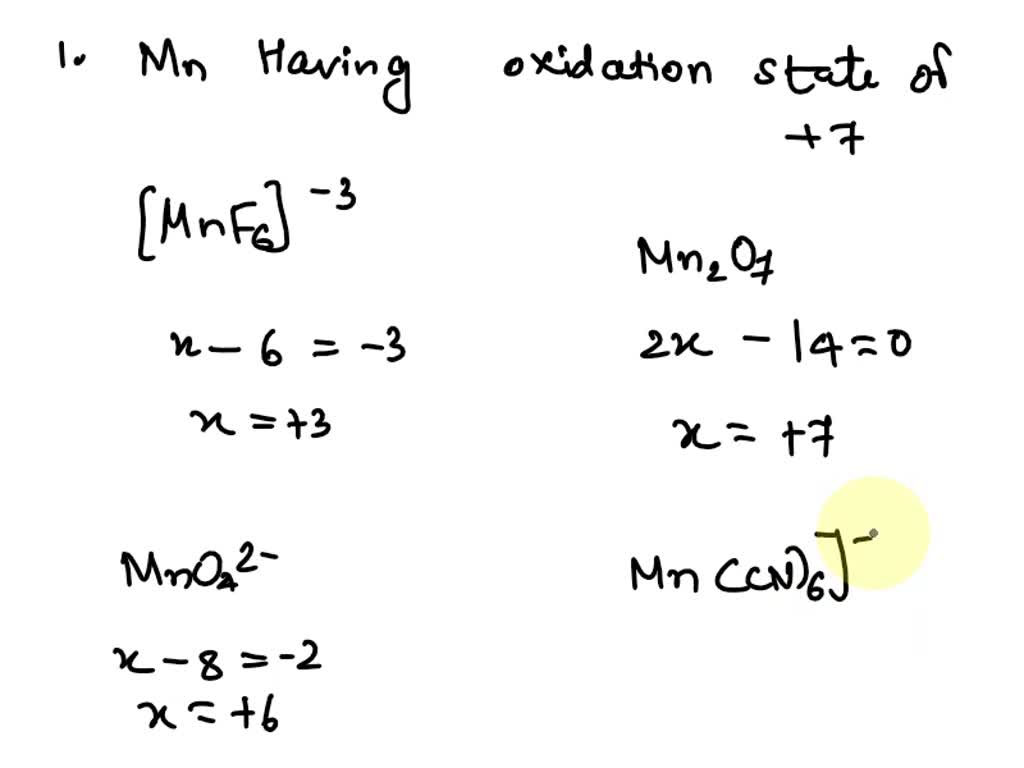 1. Mn Having oxidation state of
+7
[MnF6]⁻³
x – 6 = -3
x = +3
Mn₂O₇
2x - 14 = 0
x = +7
MnO₄²⁻
x – 8 = -2
x = +6
Mn (CN)₆]⁻